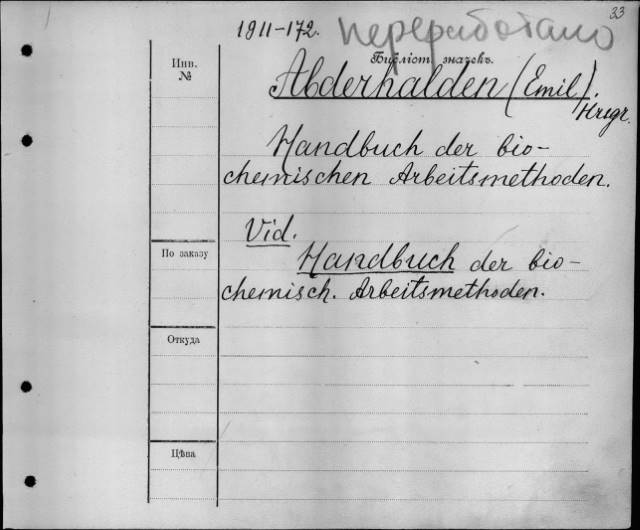 33
1911-172. переработано
Инв.
№
Бібліот. значекъ.
Abderhalden (Emil).
Hrsgr.
Handbuch der bio-
chemischen Arbeitsmethoden.
Vid.
По заказу
Handbuch der bio-
chemisch. Arbeitsmethoden.
Откуда
Цѣна